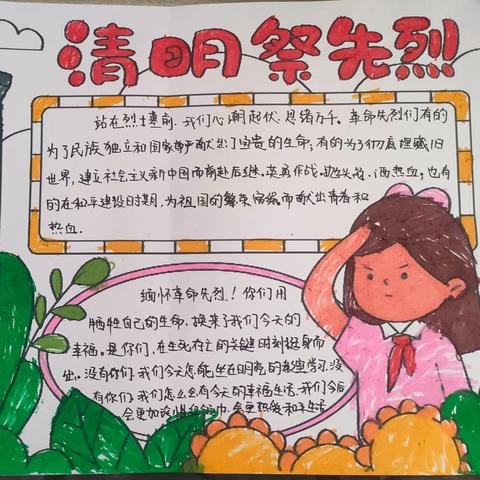 清明祭先烈
站在烈士墓前，我们心潮起伏，思绪万千。革命先烈们有的
为了民族独立和国家尊严献出了宝贵的生命，有的为了彻底埋藏旧
世界，建立社会主义新中国而前赴后继，英勇作战，抛头颅，洒热血，也有
的在和平建设时期，为祖国的繁荣富强而献出青春和
热血。
缅怀革命先烈！你们用
牺牲自己的生命，换来了我们今天的
幸福。是你们，在生死存亡的关键时刻挺身而
出。没有你们，我们今天怎能坐在明亮的教室学习，没
有你们，我们怎么会有今天的幸福生活，我们今后
会更加珍惜红领巾，会更热爱和平生活